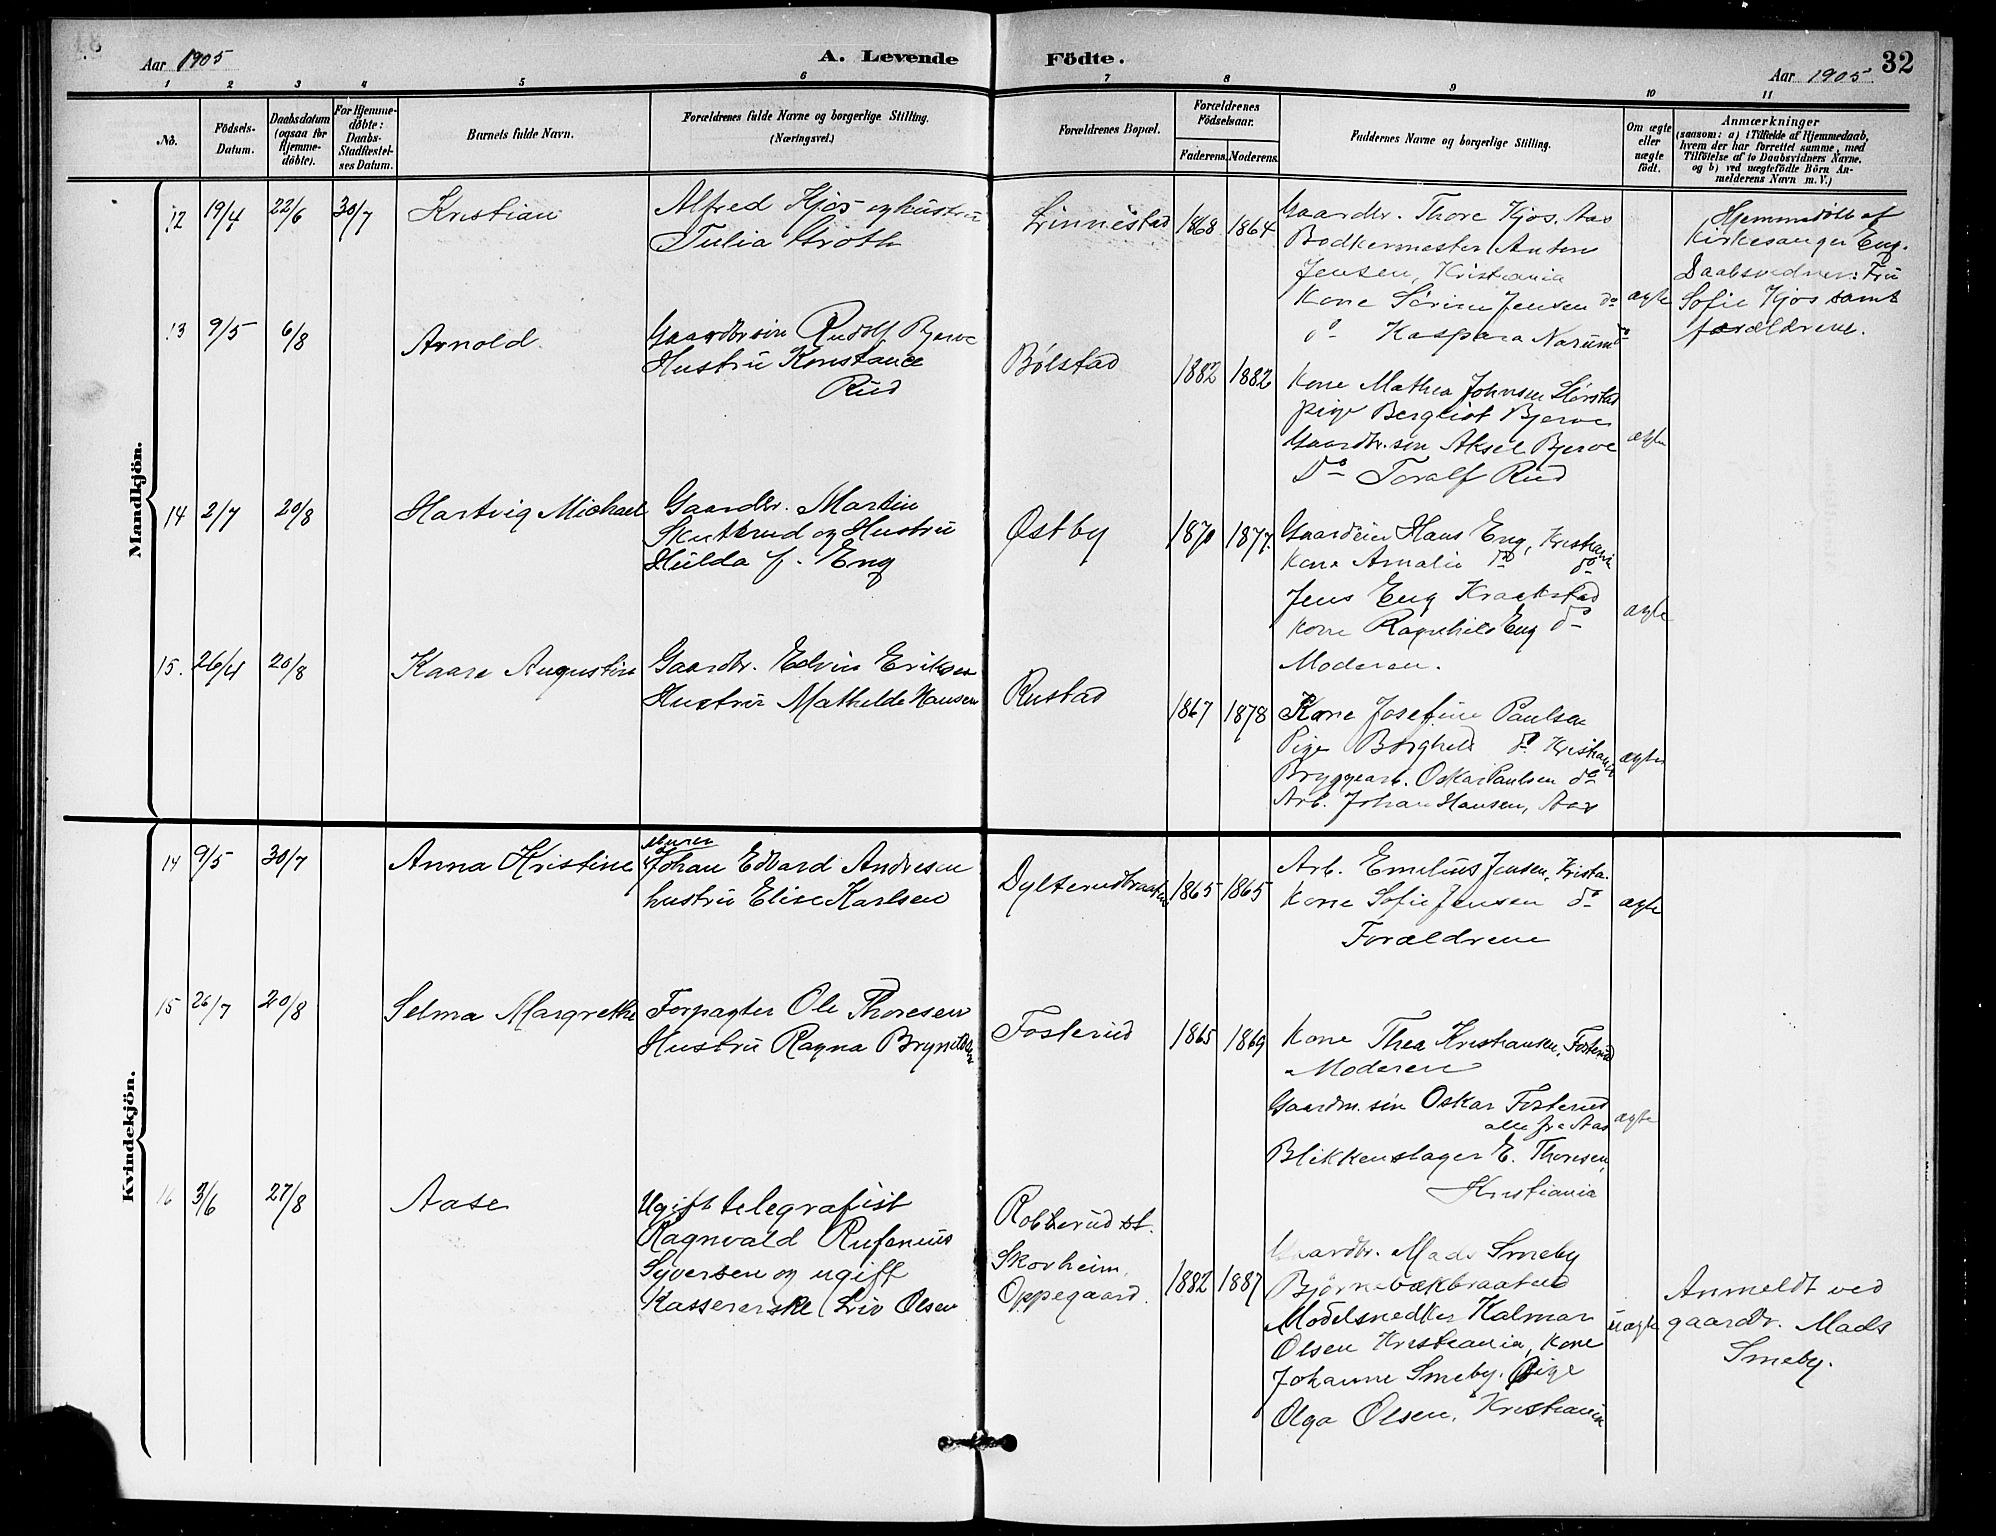 Aar 1905
A. Levende Födte.
Aar 1905
32
1 2 3 4 5 6 7 8 9 10 11
No.
Födsels-Datum.
Daabsdatum (ogsaa for Hjemme-döbte).
For Hjemme-döbte: Daabs-Stadfæstel-ses Datum.
Barnets fulde Navn.
Forældrenes fulde Navne og borgerlige Stilling. (Næringsvei.)
Forældrenes Bopæl.
Forældrenes Födselsaar.
Faderens. Moderens.
Faddernes Navne og borgerlige Stilling.
Om ægte eller uægte födt.
Anmærkninger
(saasom: a) i Tilfælde af Hjemmedaab,
hvem der har forrettet samme, med
Tilföielse af to Daabsvidners Navne.
og b) ved uægtefödte Börn An-
melderens Navn m. V.)
Mandkjön.
12 19/4 22/6 30/7 Kristian
Alfred Kjos og hustru
Julia Groth
Linnestad 1868 1864
Gaardbr. Thore Kjos, Aas
Bødkermester Anton
Jensen, Kristiania
Kone Sørine Jensen do
do Kaspara Narum do
ægte
Hjemmedøbt af
Kirkesanger Eng.
Daabsvidner: Fru
Sofie Kjos samt
forældrene.
13 9/5 6/8 Arnold.
Gaardbr søn Rudolf Bjerve
Hustru Konstance
Rud
Bølstad 1882 1882
Kone Mathea Johnsen
pige Bergliot Bjerve
Gaardbr. søn Aksel Bjerve
Do Toralf Rud
ægte
14 2/7 20/8 Hartvig Michael
Gaardbr. Martin
Skuterud og Hustru
Hulda f. Eng
Østby 1870 1877.
Gaardeier Hans Eng, Kristiania
Kone Amalie do do
Jens Eng Kraakstad
Kone Ragnhild Eng do
Moderen.
ægte
15. 26/4 20/8 Kaare Augustin
Gaardbr. Edvin Eriksen
Hustru Mathilde Hansen
Rustad 1867 1878
Kone Josefine Paulsen
Pige Borghild do Kristiania
Bryggearb. Oskar Paulsen do
Arb. Johan Hansen, Aas
ægte
Kvindekjön.
14 9/5 30/7 Anna Kristine
Murer
Johan Edvard Andresen
hustru Elise Karlsen
Dylterudbraaten 1865 1865
Arb. Emilius Jensen, Krista.
Kone Sofie Jensen do
Forældrene
ægte
15 26/7 20/8 Selma Margrethe
Forpagter Ole Thoresen
Hustru Ragna Brynildsen
Fosterud 1865 1869
Kone Thea Kristiansen, Fosterud
Moderen
Gaardm. søn Oskar Fosterud
alle fra Aas
Blikkenslager E. Thoresen,
Kristiania
ægte
16 3/6 27/8 Aase
Ugift telegrafist
Ragnvald Rufenius
Syversen og ugift
Kassererske Liv Olsen
Robterud st.
Skovheim,
Oppegaard.
1882 1887
Gaardbr. Mads Smeby
Bjørnebækbraaten
Modelsnedker Kalmar
Olsen Kristiania, Kone
Johanne Smeby. Pige
Olga Olsen, Kristiania
uægte
Anmeldt ved
gaardbr. Mads
Smeby.